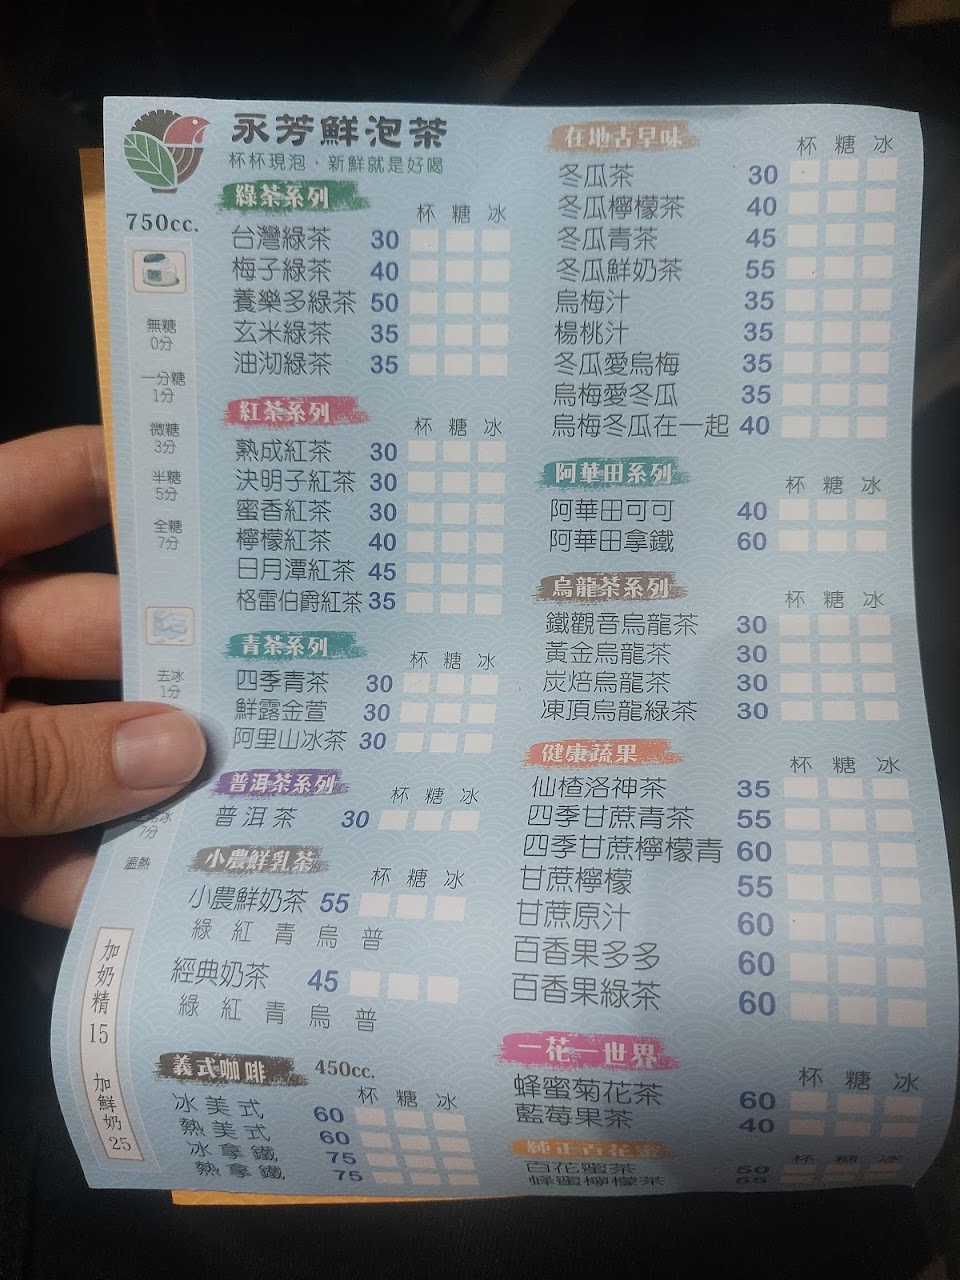 永芳鮮泡茶
杯杯現泡、新鮮就是好喝
750cc.
無糖
0分
一分糖
1分
微糖
3分
半糖
5分
全糖
7分
去冰
1分
冰
7分
溫熱
加奶精
15
加鮮奶
25
綠茶系列
杯 糖 冰
台灣綠茶 30
梅子綠茶 40
養樂多綠茶 50
玄米綠茶 35
油沏綠茶 35
紅茶系列
杯 糖 冰
熟成紅茶 30
決明子紅茶 30
蜜香紅茶 30
檸檬紅茶 40
日月潭紅茶 45
格雷伯爵紅茶 35
青茶系列
杯 糖 冰
四季青茶 30
鮮露金萱 30
阿里山冰茶 30
普洱茶系列
杯 糖 冰
普洱茶 30
小農鮮乳茶
杯 糖 冰
小農鮮奶茶 55
綠 紅 青 烏 普
經典奶茶 45
綠 紅 青 烏 普
義式咖啡 450cc.
杯 糖 冰
冰美式 60
熱美式 60
冰拿鐵 75
熱拿鐵 75
在地古早味
杯 糖 冰
冬瓜茶 30
冬瓜檸檬茶 40
冬瓜青茶 45
冬瓜鮮奶茶 55
烏梅汁 35
楊桃汁 35
冬瓜愛烏梅 35
烏梅愛冬瓜 35
烏梅冬瓜在一起 40
阿華田系列
杯 糖 冰
阿華田可可 40
阿華田拿鐵 60
烏龍茶系列
杯 糖 冰
鐵觀音烏龍茶 30
黃金烏龍茶 30
炭焙烏龍茶 30
凍頂烏龍綠茶 30
健康蔬果
杯 糖 冰
仙楂洛神茶 35
四季甘蔗青茶 55
四季甘蔗檸檬青 60
甘蔗檸檬 55
甘蔗原汁 60
百香果多多 60
百香果綠茶 60
一花一世界
杯 糖 冰
蜂蜜菊花茶 60
藍莓果茶 40
純正百花蜜
杯 糖 冰
百花蜜茶 50
蜂蜜檸檬茶 55